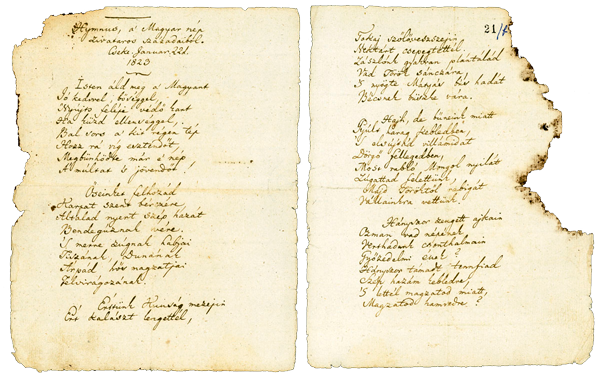 Hymnus, a' Magyar nép
zivataros századaiból.
Cseke. Januar. 22d.
1823
Isten áldd meg a' Magyart
Jó kedvvel, bőséggel,
Nyújts feléje védő kart
Ha küzd ellenséggel,
Bal sors a' kit régen tép
Hozz rá víg esztendőt,
Megbünhödte már e' nép
A' multat 's jövendőt!
Őseinket felhozád
Kárpát szent bérczére,
Által nyert szép hazát
Bendegúznak vére.
'S merre zúgnak habjai
Tiszának, Dunának
Árpád hős magzatjai
Felvirágozának.
Értünk Kunság mezein
Ért kalászt lengettél,
21
Tokaj szőlővesszein
Nektárt csepegtettél.
Zászlónk gyakran plántálád
Vad Török sánczára,
'S nyögte Mátyás bús hadát
Bécsnek büszke vára.
Hajh, de bűneink miatt
Gyúlt harag kebledben,
'S elsújtád villámidat
Dörgő fellegedben,
Most rabló Mongol nyilát
Zúgattad felettünk,
Majd Töröktől rabigát
Vállainkra vettünk.
Hányszor zengett ajkain
Ozman vad népének
Vert hadunk csonthalmain
Győzedelmi ének!
Hányszor támadt tennfiad
Szép hazám kebledre,
'S lettél magzatod miatt
Magzatod hamvedre?